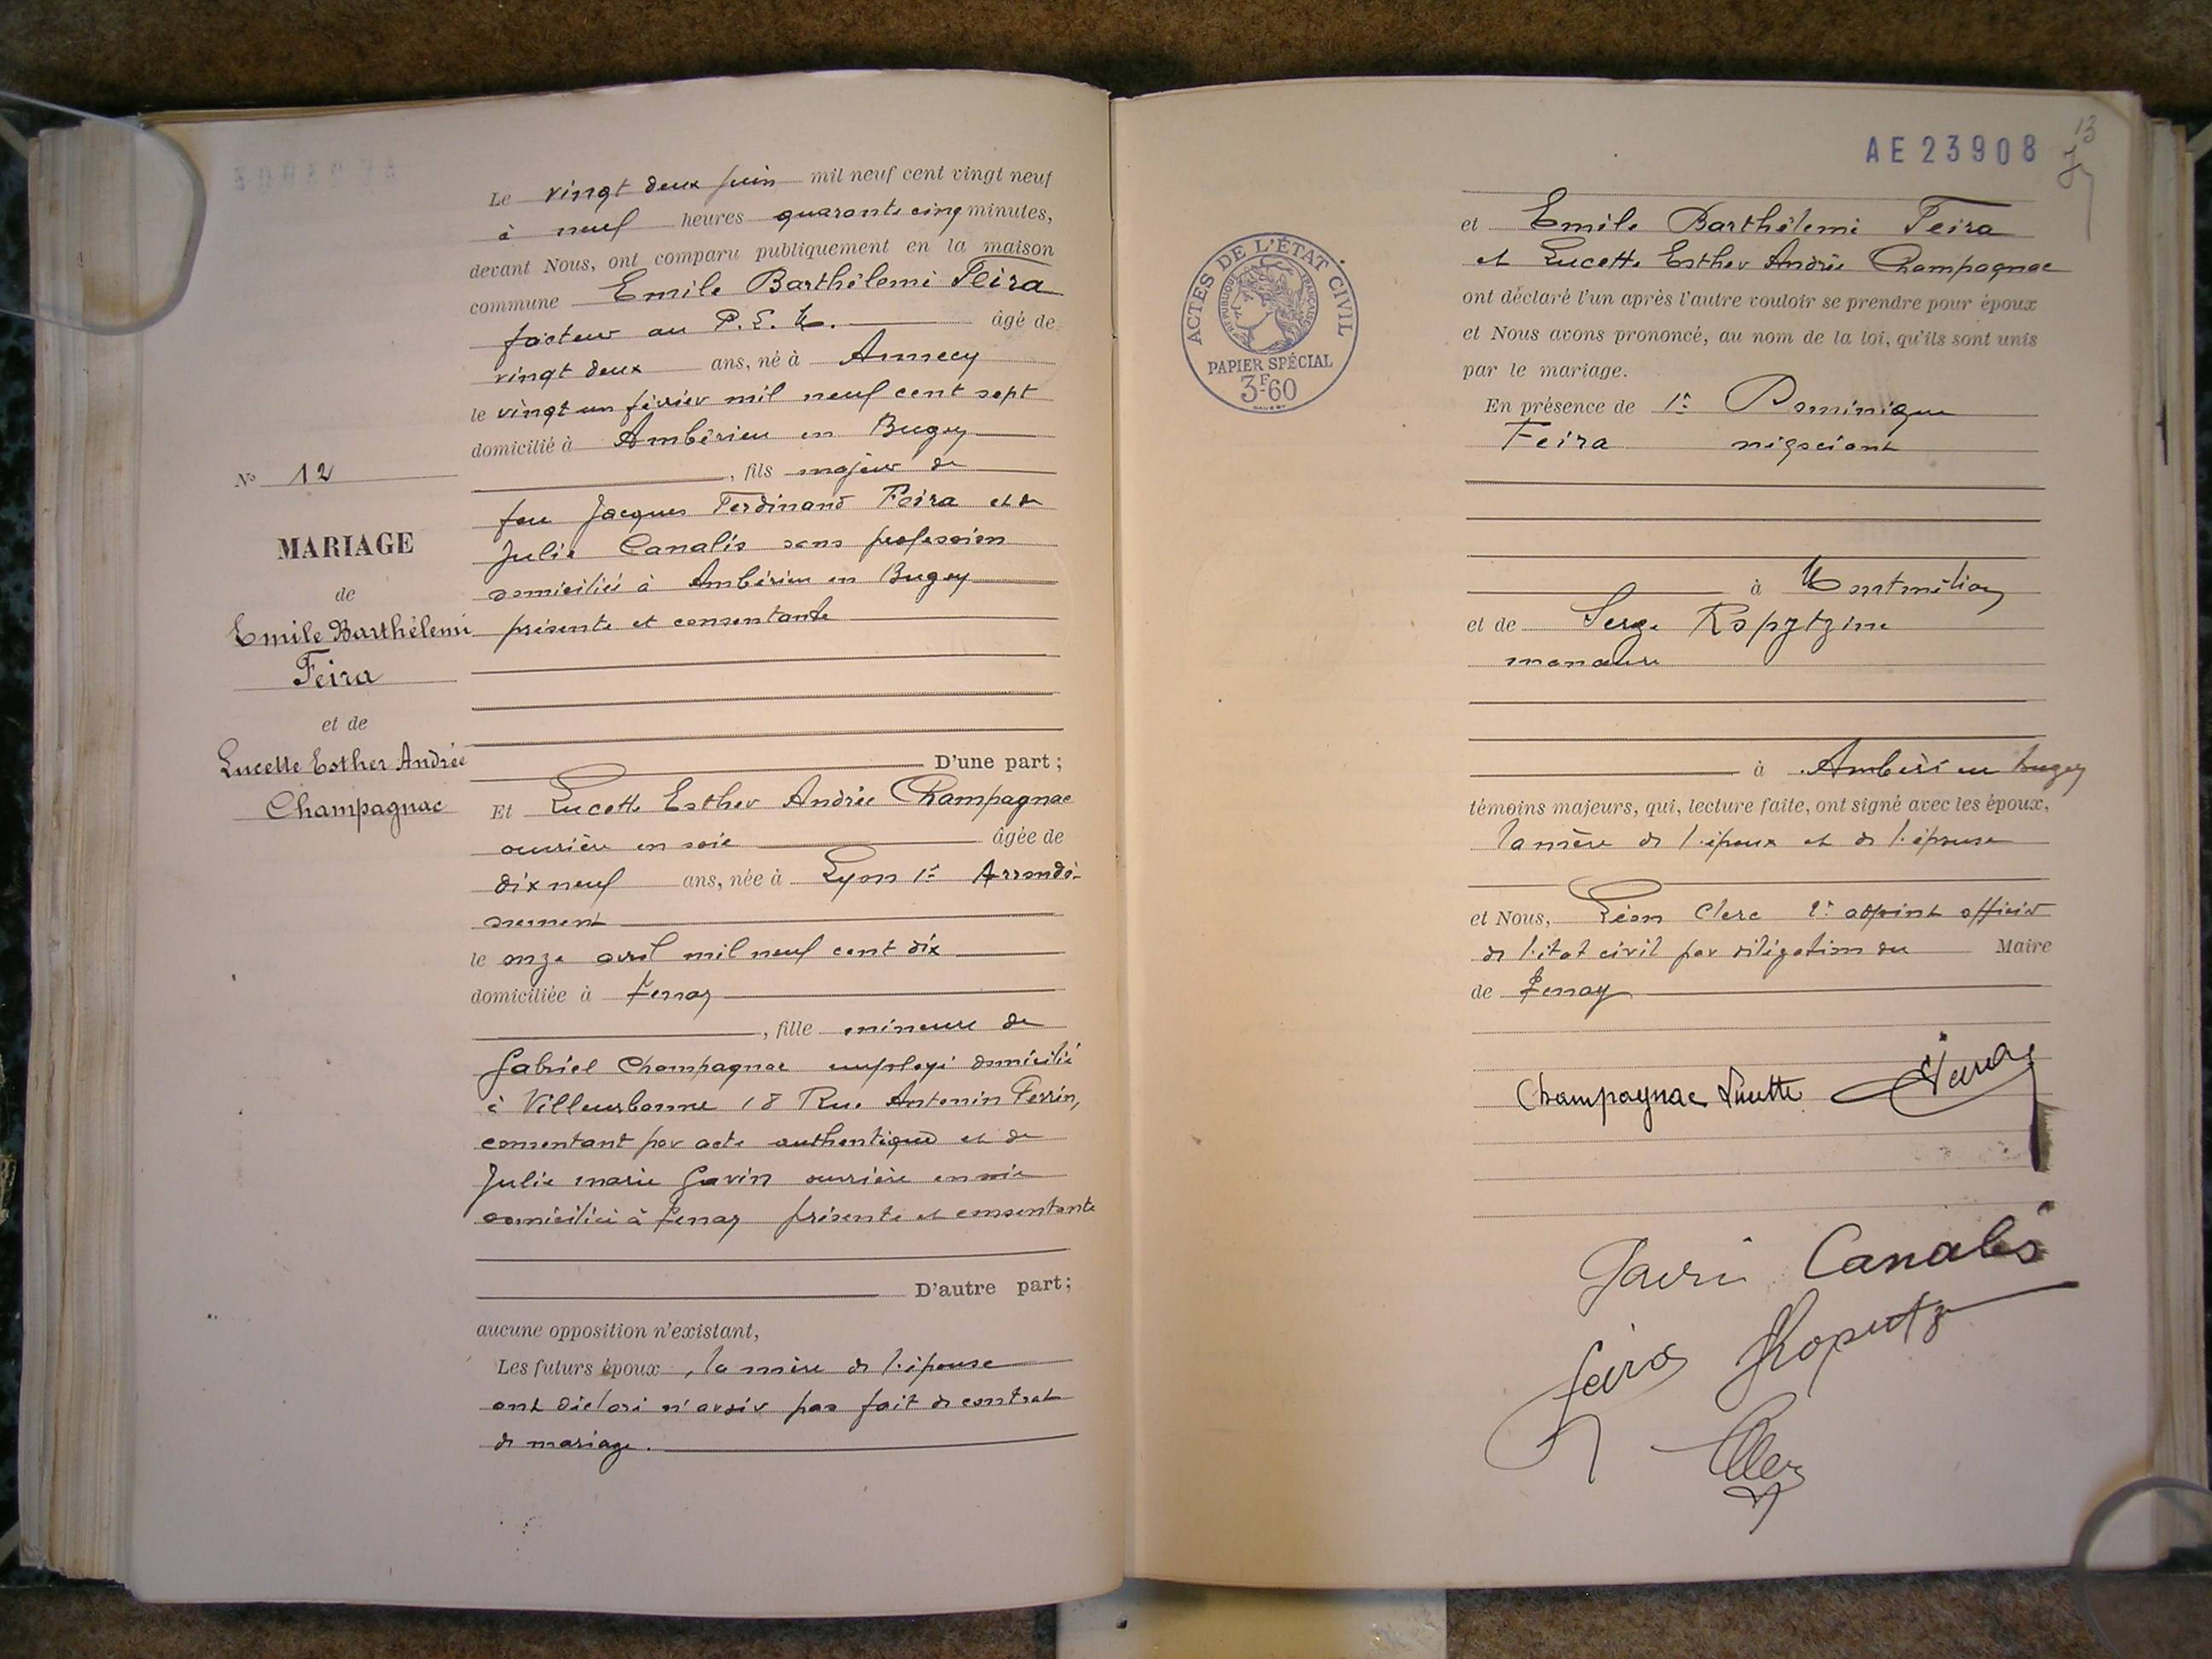 Le vingt deux juin mil neuf cent vingt neuf
à neuf heures quarante cinq minutes,
devant Nous, ont comparu publiquement en la maison
commune Emile Barthélemi Feira
facteur au P.L.M. âgé de
vingt deux ans, né à Annecy
le vingt un février mil neuf cent sept
domicilié à Ambérieu en Bugey
, fils majeur de
feu Jacques Ferdinand Feira et de
Julie Canalis sans profession
domiciliée à Ambérieu en Bugey
présente et consentante
D'une part ;
Et Lucette Esther Andrée Champagnac
ouvrière en soie âgée de
dix neuf ans, née à Lyon 1er Arrondis-
sement
le onze avril mil neuf cent dix
domiciliée à Tenay
, fille mineure de
Gabriel Champagnac employé domicilié
à Villeurbanne 18 Rue Antonin Perrin,
consentant par acte authentique et de
Julie marie Gavin ouvrière en soie
domiciliée à Tenay présente et consentante
D'autre part ;
aucune opposition n'existant,
Les futurs époux, la mère de l'épouse
ont déclaré n'avoir pas fait de contrat
de mariage.
No 12
MARIAGE
de
Emile Barthélemi
Feira
et de
Lucette Esther Andrée
Champagnac
AE23908
13
ACTES DE L'ÉTAT CIVIL
RÉPUBLIQUE FRANÇAISE
PAPIER SPÉCIAL
3F60
et Emile Barthélemi Feira
et Lucette Esther Andrée Champagnac
ont déclaré l'un après l'autre vouloir se prendre pour époux
et Nous avons prononcé, au nom de la loi, qu'ils sont unis
par le mariage.
En présence de 1° Dominique
Feira négociant
à Montmélian
et de Serge Kopytzine
manœuvre
à Ambérieu en Bugey
témoins majeurs, qui, lecture faite, ont signé avec les époux,
la mère de l'époux et de l'épouse
et Nous, Léon Clerc adjoint officier
de l'état civil par délégation du Maire
de Tenay
Champagnac Lucette Feira
Gavin Canalis
Feira
Clerc